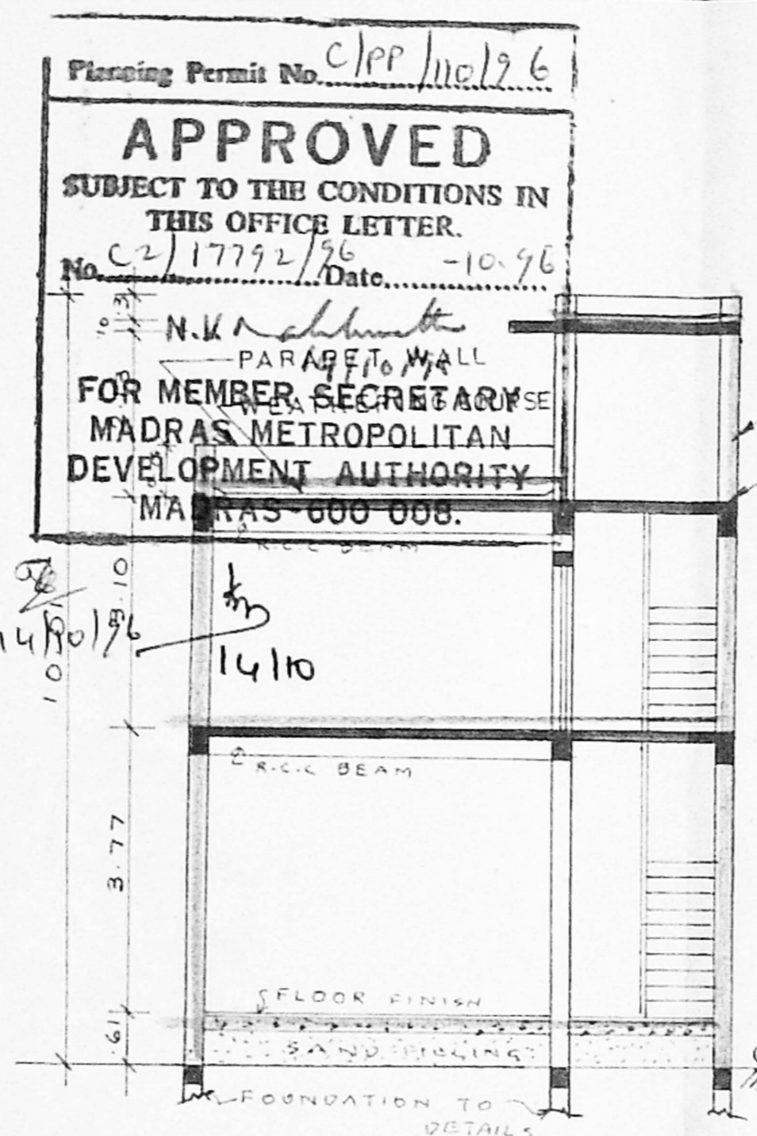 Planning Permit No. C/PP/110/96
APPROVED
SUBJECT TO THE CONDITIONS IN
THIS OFFICE LETTER.
No. C2/17792/96 Date -10.96
N.K
PARAPET WALL
FOR MEMBER SECRETARY
WEATHERING COURSE
MADRAS METROPOLITAN
DEVELOPMENT AUTHORITY
MADRAS-600 008.
R.C.C BEAM
3.10
14/10/96
14/10
R.C.C BEAM
3.77
FLOOR FINISH
.61
SAND FILLING
FOUNDATION TO
DETAILS